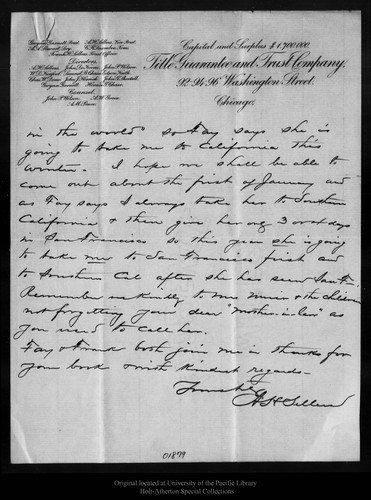 Capital and Surplus $1,700,000.
Title Guarantee and Trust Company,
92-94-96 Washington Street.
Chicago,
Directors,
Counsel,
in the world so Fay says she is
going to take me to California this
winter. I hope we shall be able to
come out about the first of January and
as Fay says I always take her to Southern
California & then give her only 3 or 4 days
in San Francisco so this year she is going
to take me to San Francisco first and
to Southern Cal after she has seen San F.
Remember us kindly to Mrs Muir & the children
not forgetting your dear "Mother-in-law" as
you used to call her.
Fay & Frank both join me in thanks for
your book & with kindest regards-
A H Sellers
01879
Original located at University of the Pacific Library
Holt-Atherton Special Collections